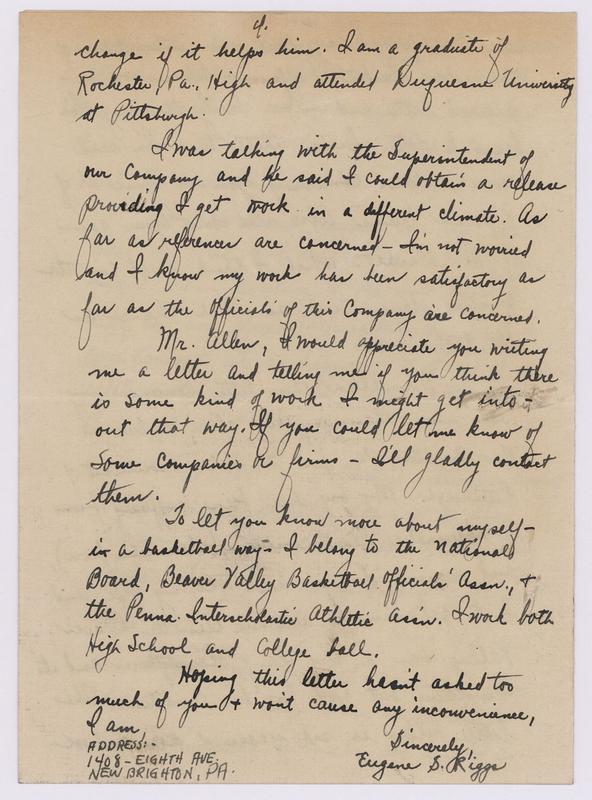 4.
change if it helps him. I am a graduate of
Rochester, Pa., High and attended Duquesne University
at Pittsburgh.
I was talking with the Superintendent of
our Company and he said I could obtain a release
providing I get work in a different climate. As
far as references are concerned - I'm not worried
and I know my work has been satisfactory as
far as the officials of this Company are concerned.
Mr. Allen, I would appreciate you writing
me a letter and telling me if you think there
is some kind of work I might get into -
out that way. If you could let me know of
some companies or firms - I'll gladly contact
them.
To let you know more about myself -
in a basketball way - I belong to the National
Board, Beaver Valley Basketball Officials' Assn., +
the Penna. Interscholastic Athletic Ass'n. I work both
High School and College ball.
Hoping this letter hasn't asked too
much of you + won't cause any inconvenience,
I am
Sincerely,
Eugene S. Riggs
ADDRESS:-
1408 - EIGHTH AVE.
NEW BRIGHTON, PA.